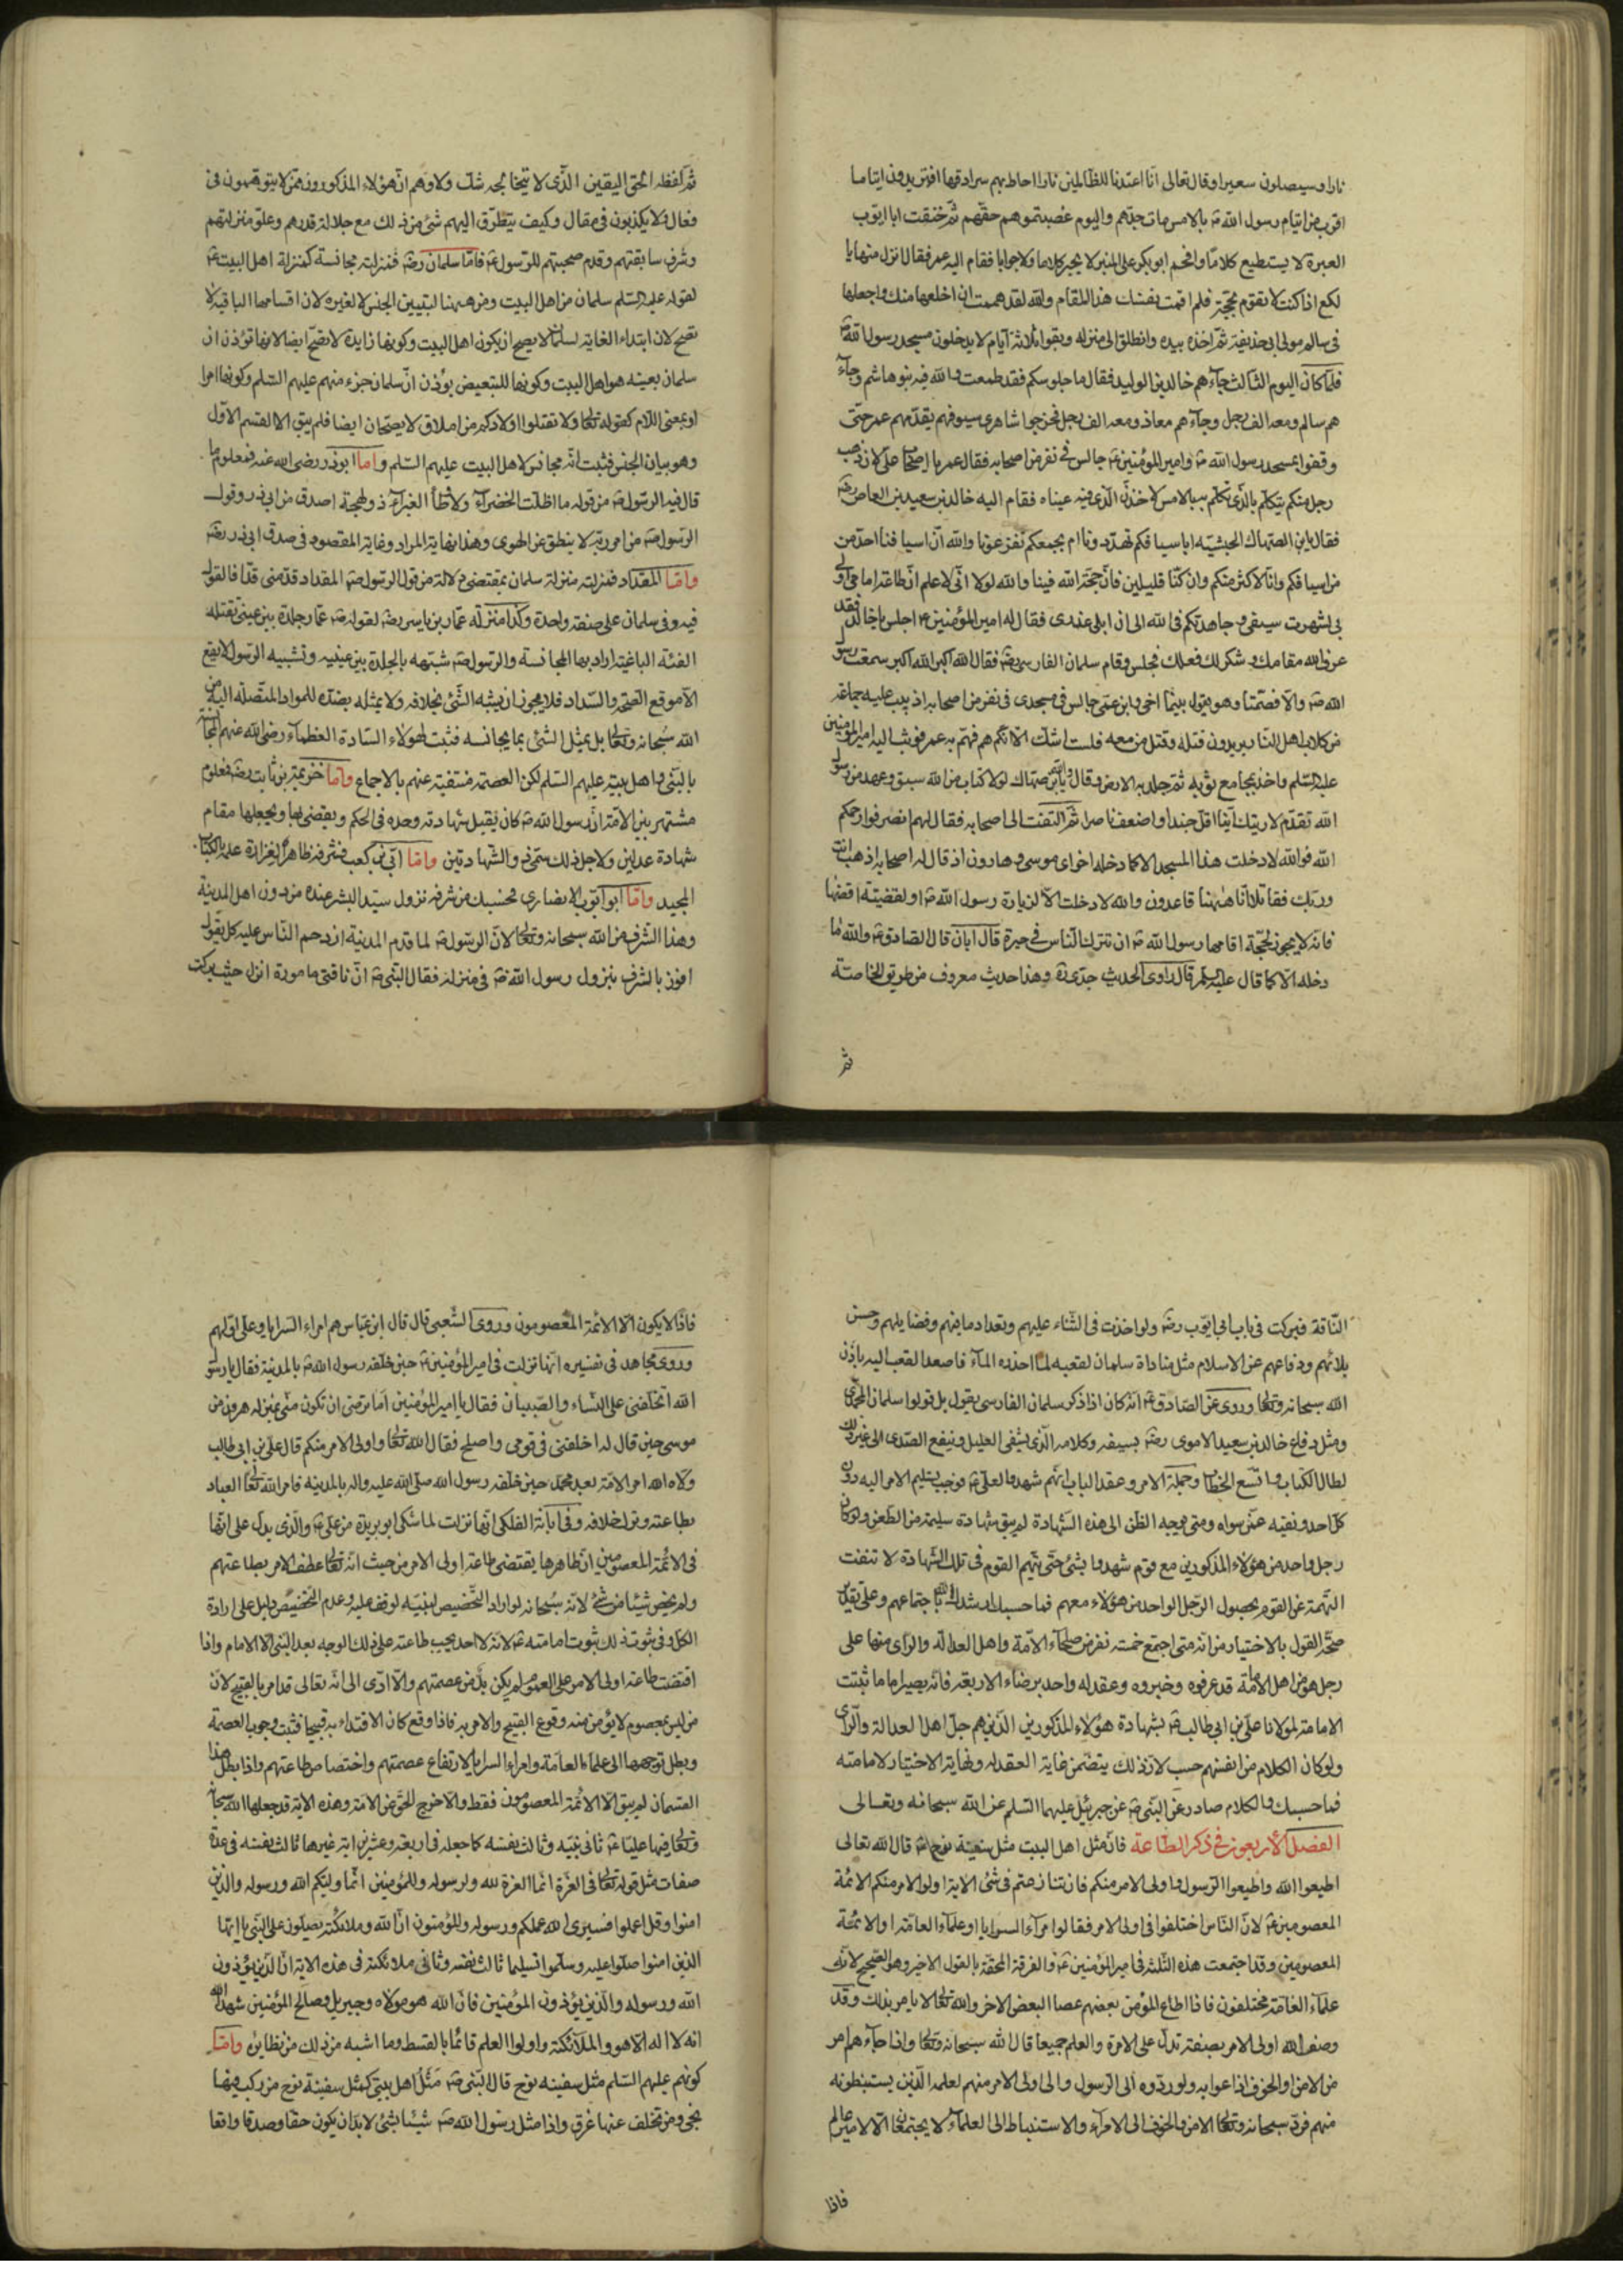 نارا وسيصلون سعيرا وقال تعالى انا اعتدنا للظالمين نارا احاط بهم سرادقها افتريدون ايتاما
اقرب من ايتام رسول الله ص بالامس مات جدهم واليوم غصبتموهم حقهم ثم خنقت ابا ايوب
العبرة لا يستطيع كلاما وافحم ابو بكر على المنبر لا يحير كلاما ولا جوابا فقام اليه عمر فقال انزل منها يا
لكع اذا كنت لا تقوم بحجة فلم اقمت نفسك هذا المقام والله لقد هممت ان اخلعها منك واجعلها
فى سالم مولى ابى حذيفة ثم اخذه بيده وانطلق الى منزله وبقوا ثلاثة ايام لا يدخلون مسجد رسول الله ص
فلما كان اليوم الثالث جآءهم خالد بن الوليد فقال ما جلوسكم فقد طمعت والله فيه بنو هاشم وجآء
هم سالم ومعه الف رجل وجآءهم معاذ ومعه الف رجل فخرجوا شاهرى سيوفهم يقدمهم عمر حتى
وقفوا بمسجد رسول الله ص وامير المؤمنين ع جالس فى نفر من اصحابه فقال عمر يا اصحاب على لان ذهب
رجل منكم يتكلم بالذى تكلم به بالامس لاخذن الذى فيه عيناه فقام اليه خالد بن سعيد بن العاص رض
فقال يا بن الصهاك الحبشيه ابا سيافكم تهدد ونا ام بجمعكم تفزعونا والله ان اسيافنا احد من
من اسيافكم وانا لاكثر منكم وان كنا قليلين فان حجة الله فينا والله لولا انى لاعلم ان طاعة امامى اولى
بى لشهرت سيفى وجاهدتكم فى الله الى ان ابلى عذرى فقال له امير المؤمنين ع اجلس يا خالد فقد
عرف الله مقامك وشكر لك فعلك فجلس وقام سلمان الفارسى رض فقال الله اكبر الله اكبر سمعت رسول
الله ص والا فصمتا وهو يقول بينما اخى وابن عمى جالس فى مسجدى فى نفر من اصحابه اذ يثب عليه جماعة
من كلاب اهل النار يريدون قتله وقتل من معه فلست اشك الا انكم هم فهم به عمر فوثب اليه امير المؤمنين
عليه السلم واخذ بمجامع ثوبه ثم جلد به الارض وقال والله يا بن صهاك لولا كتاب من الله سبق وعهد من رسول
الله تقدم لاريتك اينا اقل جندا واضعف ناصرا ثم التفت الى اصحابه فقال لهم انصرفوا رحمكم
الله فوالله لا دخلت هذا المسجد الا كما دخله اخواى موسى وهارون اذ قال له اصحابه اذهب انت
وربك فقاتلا انا ههنا قاعدون والله لا دخلت الا لزيارة رسول الله ص او لقضية اقضها
فانه لا يجوز لحجة اقامها رسول الله ص ان تترك الناس فى حيرة قال ابان قال الصادق ع والله ما
دخله الا كما قال عليه السلم قال راوى الحديث جدى ره وهذا حديث معروف من طريق الخاصة
ثم
ثم لفظه الحق اليقين الذى لا يتخالجه شك ولا وهم ان هؤلاء المذكورون ممن لا يتوهمون فى
فعال ولا يكذبون فى مقال وكيف يتطرق اليهم شئ من ذلك مع جلالة قدرهم وعلو منزلتهم
وشرف سابقتهم وقدم صحبتهم للرسول ع فاما سلمان رض فمنزلته مجانسة كمنزلة اهل البيت ع
لقوله عليه السلم سلمان من اهل البيت ومن ههنا لتبيين الجنس لا لغيره لان اقسامها الباقيه لا
تصح لان ابتداء الغاية لسلمان لا يصح ان يكون اهل البيت وكونها زايدة لا تصح ايضا لانها تؤذن ان
سلمان بعينه هو اهل البيت وكونها للتبعيض يؤذن ان سلمان جزء منهم عليهم السلم وكونها امرا
او بمعنى اللام كقوله تعالى ولا تقتلوا اولادكم من املاق لا يصحان ايضا فلم يبق الا القسم الاول
وهو بيان الجنس فثبت انه مجانس لاهل البيت عليهم السلم واما ابوذر رضى الله عنه فمعلوم ما
قال فيه الرسول ص من قوله ما اظلت الخضرآء ولا اقلت الغبرآء ذو لهجة اصدق من ابى ذر وقول
الرسول ص من امر ربه لا ينطق عن الهوى وهذا نهاية المراد وغاية المقصود فى صدق ابى ذر رض
واما المقداد فمنزلته منزلة سلمان بمقتضى دلالة من قول الرسول ص المقداد قد منى قدا فالقول
فيه وفى سلمان على صنفة واحدة وكذا منزلة عمار بن ياسر رض لقوله ص عمار جلدة بين عينى تقتله
الفئة الباغية اراد بها المجانسة والرسول ص شبهه بالجلدة بين عينيه وتشبيه الرسول لا يقع
الا موقع الصحة والسداد فلا يجوز ان يشبه الشئ بخلافه ولا يمثله بضده للمواد المتصلة اليه من
الله سبحانه وتعالى بل يمثل الشئ بما يجانسه فثبت لهؤلاء السادة العظمآء رضى الله عنهم المجانسة
بالنبى واهل بيته عليهم السلم لكن العصمة منتفية عنهم بالاجماع واما خزيمة بن ثابت رض فمعلوم
مشتهر بين الامة ان رسول الله ص كان يقبل شهادته وحده فى الحكم ويقضى بها ويجعلها مقام
شهادة عدلين ولاجل ذلك سمى ذو الشهادتين واما ابى بن كعب فشرفه ظاهر لغزارة علمه بالكتاب
المجيد واما ابو ايوب الانصارى فحسبك من شرفه نزول سيد البشر عنده من دون اهل المدينة
وهذا الشرف من الله سبحانه وتعالى لان الرسول ص لما قدم المدينة ازدحم الناس عليه كل يقول
افوز بالشرف بنزول رسول الله ص فى منزله فقال النبى ص ان ناقتى مامورة انزل حيث بركت
الناقة فبركت فى باب ابى ايوب رض ولو اخذت فى الثناء عليهم وتعداد مافيهم وفضايلهم وحسن
بلائهم ودفاعهم عن الاسلام مثل مناداة سلمان لقعبه لما اخذه المآء فاصعد القعب اليه باذن
الله سبحانه وتعالى وروى عن الصادق ع انه كان اذا ذكر سلمان الفارسى يقول بل قولوا سلمان المحمدى
ومثل دفاع خالد بن سعيد الاموى رض بسيفه وكلامه الذى يشفى العليل وينفع الصدى الى غير ذلك
لطال الكتاب واتسع الخطاب وجملة الامر وعقد الباب انهم شهدوا لعلى ع بوجوب تسليم الامر اليه دون
كل احد ونفيه عمن سواه ومتى توجه الظن الى هذه الشهادة لم يبق شهادة سليمة من الطعن ولو كان
رجل واحد من هؤلاء المذكورين مع قوم شهدوا بشئ حتى يتهم القوم فى تلك الشهادة لا تنفت
التهمة عن القوم بحصول الرجل الواحد من هؤلاء معهم فما حسبك ارشدك الله باجتماعهم وعلى تقدير
صحة القول بالاختيار من انه متى اجتمع خمسة نفر من صلحآء الامة واهل العدالة والراى منها على
رجل هو من اهل الامامة قد عرفوه وخبروه وعقد له واحد برضاء الاربعة فانه يصير اماما ثبتت
الامامة لمولانا على بن ابى طالب ع بشهادة هؤلاء المذكورين الذين هم جل اهل العدالة والراى
ولو كان الكلام من انفسهم حسب لان ذلك يتضمن غاية العقد له ونهاية الاختيار لامامته
فما حسبك والكلام صادر عن النبى ص عن جبرئيل عليهما السلم عن الله سبحانه وتعالى
الفصل الاربعون فى ذكر الطاعة فان مثل اهل البيت مثل سفينة نوح ع قال الله تعالى
اطيعوا الله واطيعوا الرسول واولى الامر منكم فان تنازعتم فى شئ الاية اولوا الامر منكم الائمة
المعصومين ع لان الناس اختلفوا فى اولى الامر فقالوا امرآء السرايا او علمآء العامة او الائمة
المعصومين وقد اجتمعت هذه الثلثة فى امير المؤمنين ع والفرقة المحقة بالقول الاخير وهو الصحيح لانك
علمآء العامة مختلفون فاذا اطاع المؤمن بعضهم عصا البعض الاخر والله تعالى لا يامر بذلك وقد
وصف الله اولى الامر بصفة تدل على الامرة والعلم جميعا قال الله سبحانه وتعالى واذا جآءهم امر
من الامن او الخوف اذاعوا به ولو ردوه الى الرسول والى اولى الامر منهم لعلمه الذين يستنبطونه
منهم فرد سبحانه وتعالى الامن والخوف الى الامرآء والاستنباط الى العلمآء لا يجتمعان الا لامير عالم
فاذا
فاذا لا يكون الا الائمة المعصومون وروى الشعبى قال قال ابن عباس هم امراء السرايا وعلى اولهم
وروى مجاهد فى تفسيره انها نزلت فى امير المؤمنين ع حين خلفه رسول الله ص بالمدينة فقال يا رسول
الله اتخلفنى على النساء والصبيان فقال يا امير المؤمنين اما ترضى ان تكون منى بمنزلة هرون من
موسى حين قال له اخلفنى فى قومى واصلح فقال الله تعالى واولى الامر منكم قال على بن ابى طالب
ولاه الله امر الامة بعد محمد حين خلفه رسول الله صلى الله عليه واله بالمدينة فامر الله تعالى العباد
بطاعته وترك خلافه وفى ابانة الفلكى انها نزلت لما شكى ابو بريدة من على ع والذى يدل على انها
فى الائمة المعصومين ان ظاهرها يقتضى طاعة اولى الامر من حيث انه تعالى عطف الامر بطاعتهم
ولم يخص شيئا من شئ لانه سبحانه لو اراد التخصيص لبينه لوقف عليه وعدم التخصيص دليل على ارادة
الكل وفى ثبوت ذلك ثبوت امامته ع لانه لا احد يجب طاعته على ذلك الوجه بعد النبى الا الامام واذا
اقتضت طاعة اولى الامر على العموم لم يكن بد من عصمتهم والا ادى الى انه تعالى قد امر بالقبيح لان
من ليس بمعصوم لا يؤمن منه وقوع القبيح والامر به فاذا وقع كان الاقتداء به قبيحا فثبت وجوب العصمة
وبطل توجهها الى علماء العامة وامراء السرايا لارتفاع عصمتهم واختصاص طاعتهم واذا بطل هذا
القسمان لم يبق الا الائمة المعصومون فقط والا خرج الحق عن الامة وهذه الاية قد جعلها الله سبحانه
وتعالى فيها عليا ع ثانى نبيه وثالث نفسه كما جعله فى اربعة وعشرين اية غيرها ثالث نفسه فى عدة
صفات مثل قوله تعالى فى العزة انما العزة لله ولرسوله وللمؤمنين انما وليكم الله ورسوله والذين
امنوا وقل اعملوا فسيرى الله عملكم ورسوله والمؤمنون ان الله وملائكته يصلون على النبى يا ايها
الذين امنوا صلوا عليه وسلموا تسليما ثالث نفسه وثانى ملائكته فى هذه الاية ان الذين يؤذون
الله ورسوله والذين يؤذون المؤمنين فان الله هو مولاه وجبريل وصالح المؤمنين شهد الله
انه لا اله الا هو والملائكة واولوا العلم قائما بالقسط وما اشبه من ذلك من نظايره واما
كونهم عليهم السلم مثل سفينه نوح قال النبى ص مثل اهل بيتى كمثل سفينة نوح من ركب فيها
نجى ومن تخلف عنها غرق واذا مثل رسول الله ص شيئا بشئ لا بد ان يكون حقا وصدقا واقعا